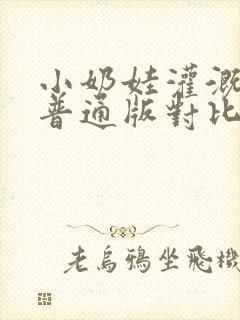 小奶娃灌溉
普通版對比
老烏鴉坐飛機